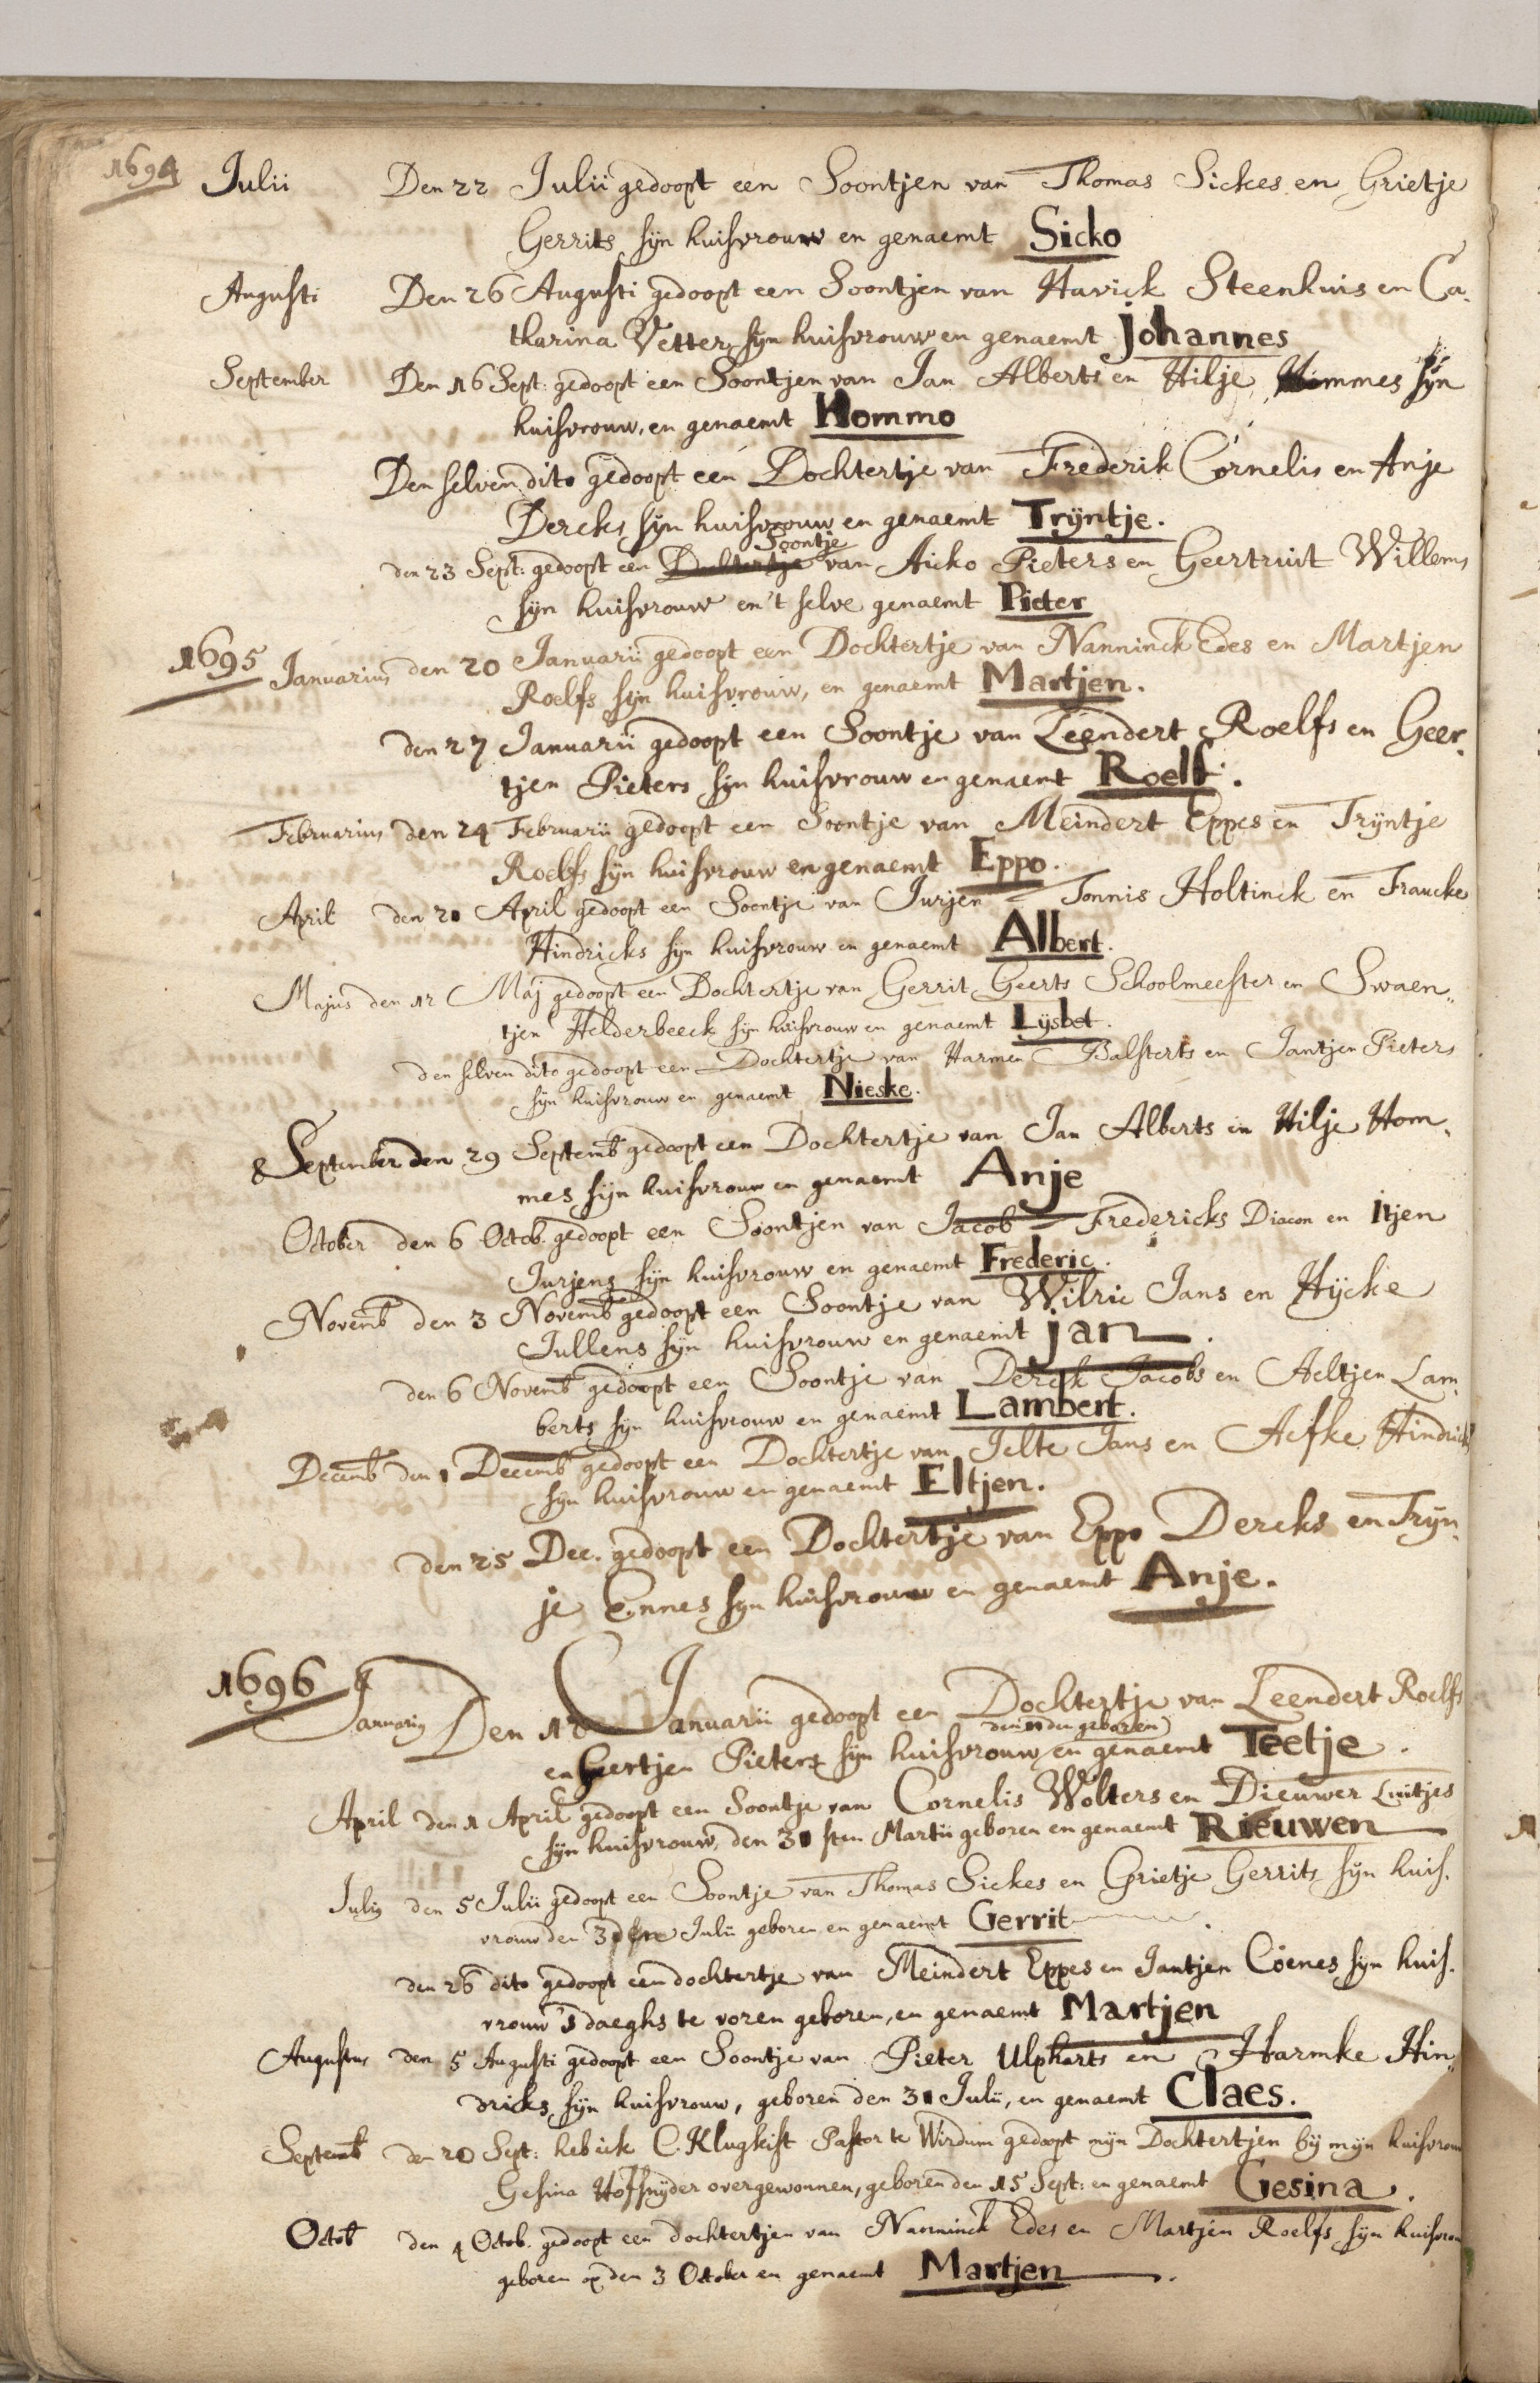 1694 Julii Den 22 Julii gedoopt een Soontjen van Thomas Sickes en Grietje
Gerrits sijn huisvrouw en genaemt Sicko
Augusti Den 26 Augusti gedoopt een Soontjen van Havick Steenhuis en Ca-
tharina Vetter sijn huisvrouw en genaemt Johannes
September Den 16 Sept: gedoopt een Soontjen van Jan Alberts en Hilje Hommes sijn
huisvrouw, en genaemt Hommo
Den selven dito gedoopt een Dochtertje van Frederik Cornelis en Anje
Dercks sijn huisvrouw en genaemt Trijntje.
Soontje
den 23 Sept: gedoopt een Dochtertje van Aicko Pieters en Geertruit Willems
sijn huisvrouw en 't selve genaemt Pieter
1695 Januarius den 20 Januarii gedoopt een Dochtertje van Nanninck Edes en Martjen
Roelfs sijn huisvrouw, en genaemt Martjen.
den 27 Januarii gedoopt een Soontje van Leendert Roelfs en Geer-
tjen Pieters sijn huisvrouw en genaemt Roelf.
Februarius den 24 Februarii gedoopt een Soontje van Meindert Eppes en Trijntje
Roelfs sijn huisvrouw en genaemt Eppo.
April den 21 April gedoopt een Soontje van Jurjen Tonnis Holtinck en Fraucke
Hindricks sijn huisvrouw en genaemt Albert.
Majus den 12 Maj gedoopt een Dochtertje van Gerrit Geerts Schoolmeester en Swaen-
tjen Helderbeeck sijn huisvrouw en genaemt Lijsbet.
den selven dito gedoopt een Dochtertje van Harmen Balsterts en Jantjen Pieters
sijn huisvrouw en genaemt Nieske.
September den 29 Septemb gedoopt een Dochtertje van Jan Alberts en Hilje Hom-
mes sijn huisvrouw en genaemt Anje
October den 6 Octob. gedoopt een Soontjen van Jacob Fredericks Diacon en Itjen
Jurjens sijn huisvrouw en genaemt Frederic.
Novemb den 3 Novemb gedoopt een Soontje van Wilric Jans en Hijcke
Jullens sijn huisvrouw en genaemt Jan.
den 6 Novemb gedoopt een Soontje van Derck Jacobs en Aeltjen Lam-
berts sijn huisvrouw en genaemt Lambert.
Decemb den 1 Decemb gedoopt een Dochtertje van Jelte Jans en Aefke Hindricks
sijn huisvrouw en genaemt Eltjen.
den 25 Dec. gedoopt een Dochtertje van Eppo Dercks en Trijn-
je Ennes sijn huisvrouw en genaemt Anje.
1696 Januarius Den 12 Januarii gedoopt een Dochtertje van Leendert Roelfs
den 11 den geboren
en Geertjen Pieters sijn huisvrouw en genaemt Teetje.
April den 1 April gedoopt een Soontje van Cornelis Wolters en Dieuwer Luitjes
sijn huisvrouw, den 31 sten Martii geboren en genaemt Rieuwen
Julius den 5 Julii gedoopt een Soontje van Thomas Sickes en Grietje Gerrits sijn huis-
vrouw den 3 Julii geboren en genaemt Gerrit
den 26 dito gedoopt een dochtertje van Meindert Eppes en Jantjen Coenes sijn huis-
vrouw 's daeghs te voren geboren, en genaemt Martjen
Augustus den 5 Augusti gedoopt een Soontje van Pieter Ulpharts en Harmke Hin-
dricks sijn huisvrouw, geboren den 31 Julii, en genaemt Claes.
Septemb den 20 Sept: heb ick C. Klugkist Pastor te Wirdum gedoopt mijn Dochtertjen bij mijn huisvrouw
Gesina Hofsnijder overgewonnen, geboren den 15 Sept: en genaemt Gesina.
Octob den 4 Octob. gedoopt een dochtertjen van Nanninck Edes en Martjen Roelfs sijn huisvrou
geboren op den 3 October en genaemt Martjen.